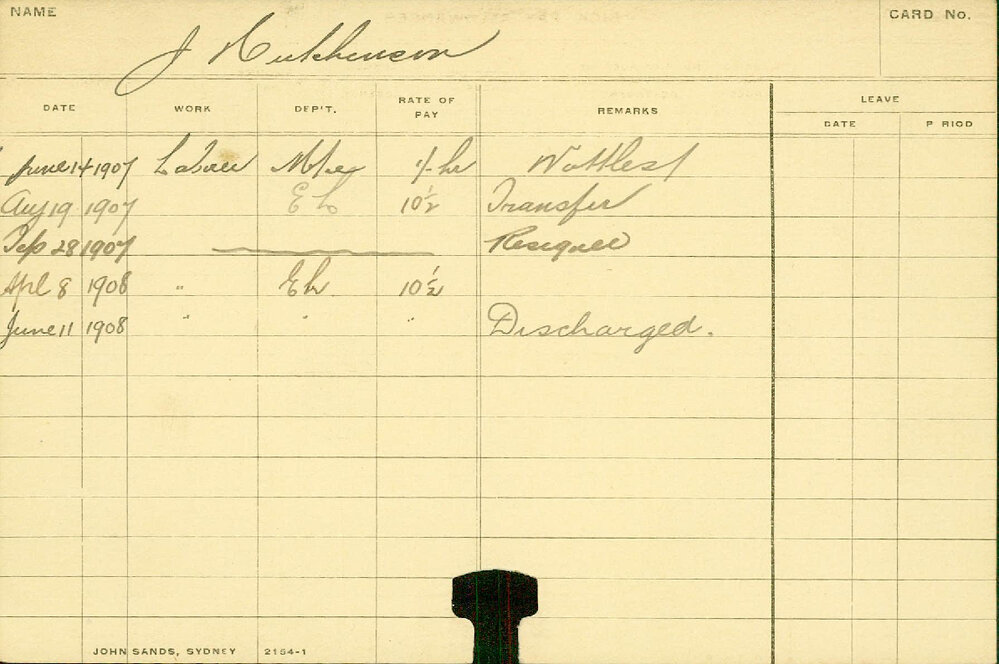 NAME
CARD No.
J Hutchinson
DATE WORK DEP'T. RATE OF PAY REMARKS LEAVE
DATE P RIOD
June 14 1907 1/- hr
Aug 19 1907 10½ Transfer
Sep 28 1907 Resigned
Apl 8 1908 " 10½
June 11 1908 " " " Discharged.
JOHN SANDS, SYDNEY 2154-1